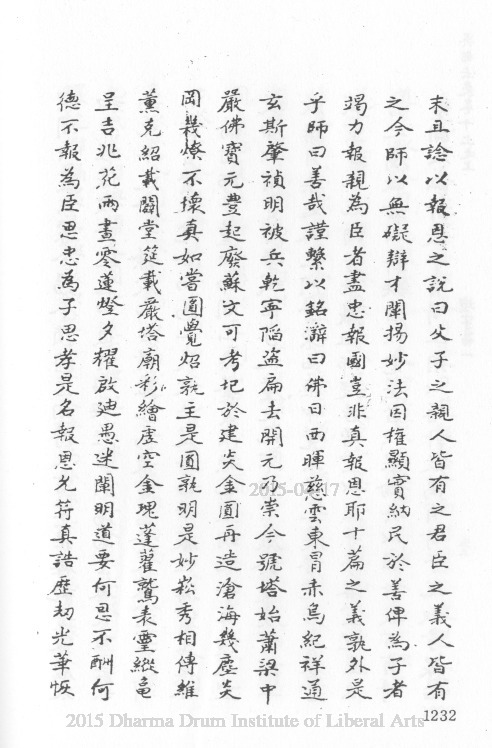 末且諗以報恩之說曰父子之親人皆有之君臣之義人皆有
之今師以無礙辯才闡揚妙法因權顯實納民於善俾為子者
竭力報親為臣者盡忠報國豈非真報恩耶十篇之義孰外是
乎師曰善哉謹繫以銘辭曰佛日西暉茲雲東冒赤烏紀祥通
玄斯肇禎明被兵乾寧陷盜扁去開元乃崇今號塔始蕭梁中
嚴佛寶元豐起廢蘇文可考圮於建炎金圓再造滄海幾塵炎
岡幾燎不壞真如嘗圓覺炤孰主是圓孰明是妙崧秀相傳維
薰克紹載闢堂筵載嚴塔廟彩繪虛空金瑰蓬藋鷲表靈縱龜
呈吉兆花雨晝零蓮燈夕耀啟廸愚迷闡明道要何恩不酬何
德不報為臣思忠為子思孝是名報恩允符真誥歷劫光華恢
2015-04-17
1232
2015 Dharma Drum Institute of Liberal Arts